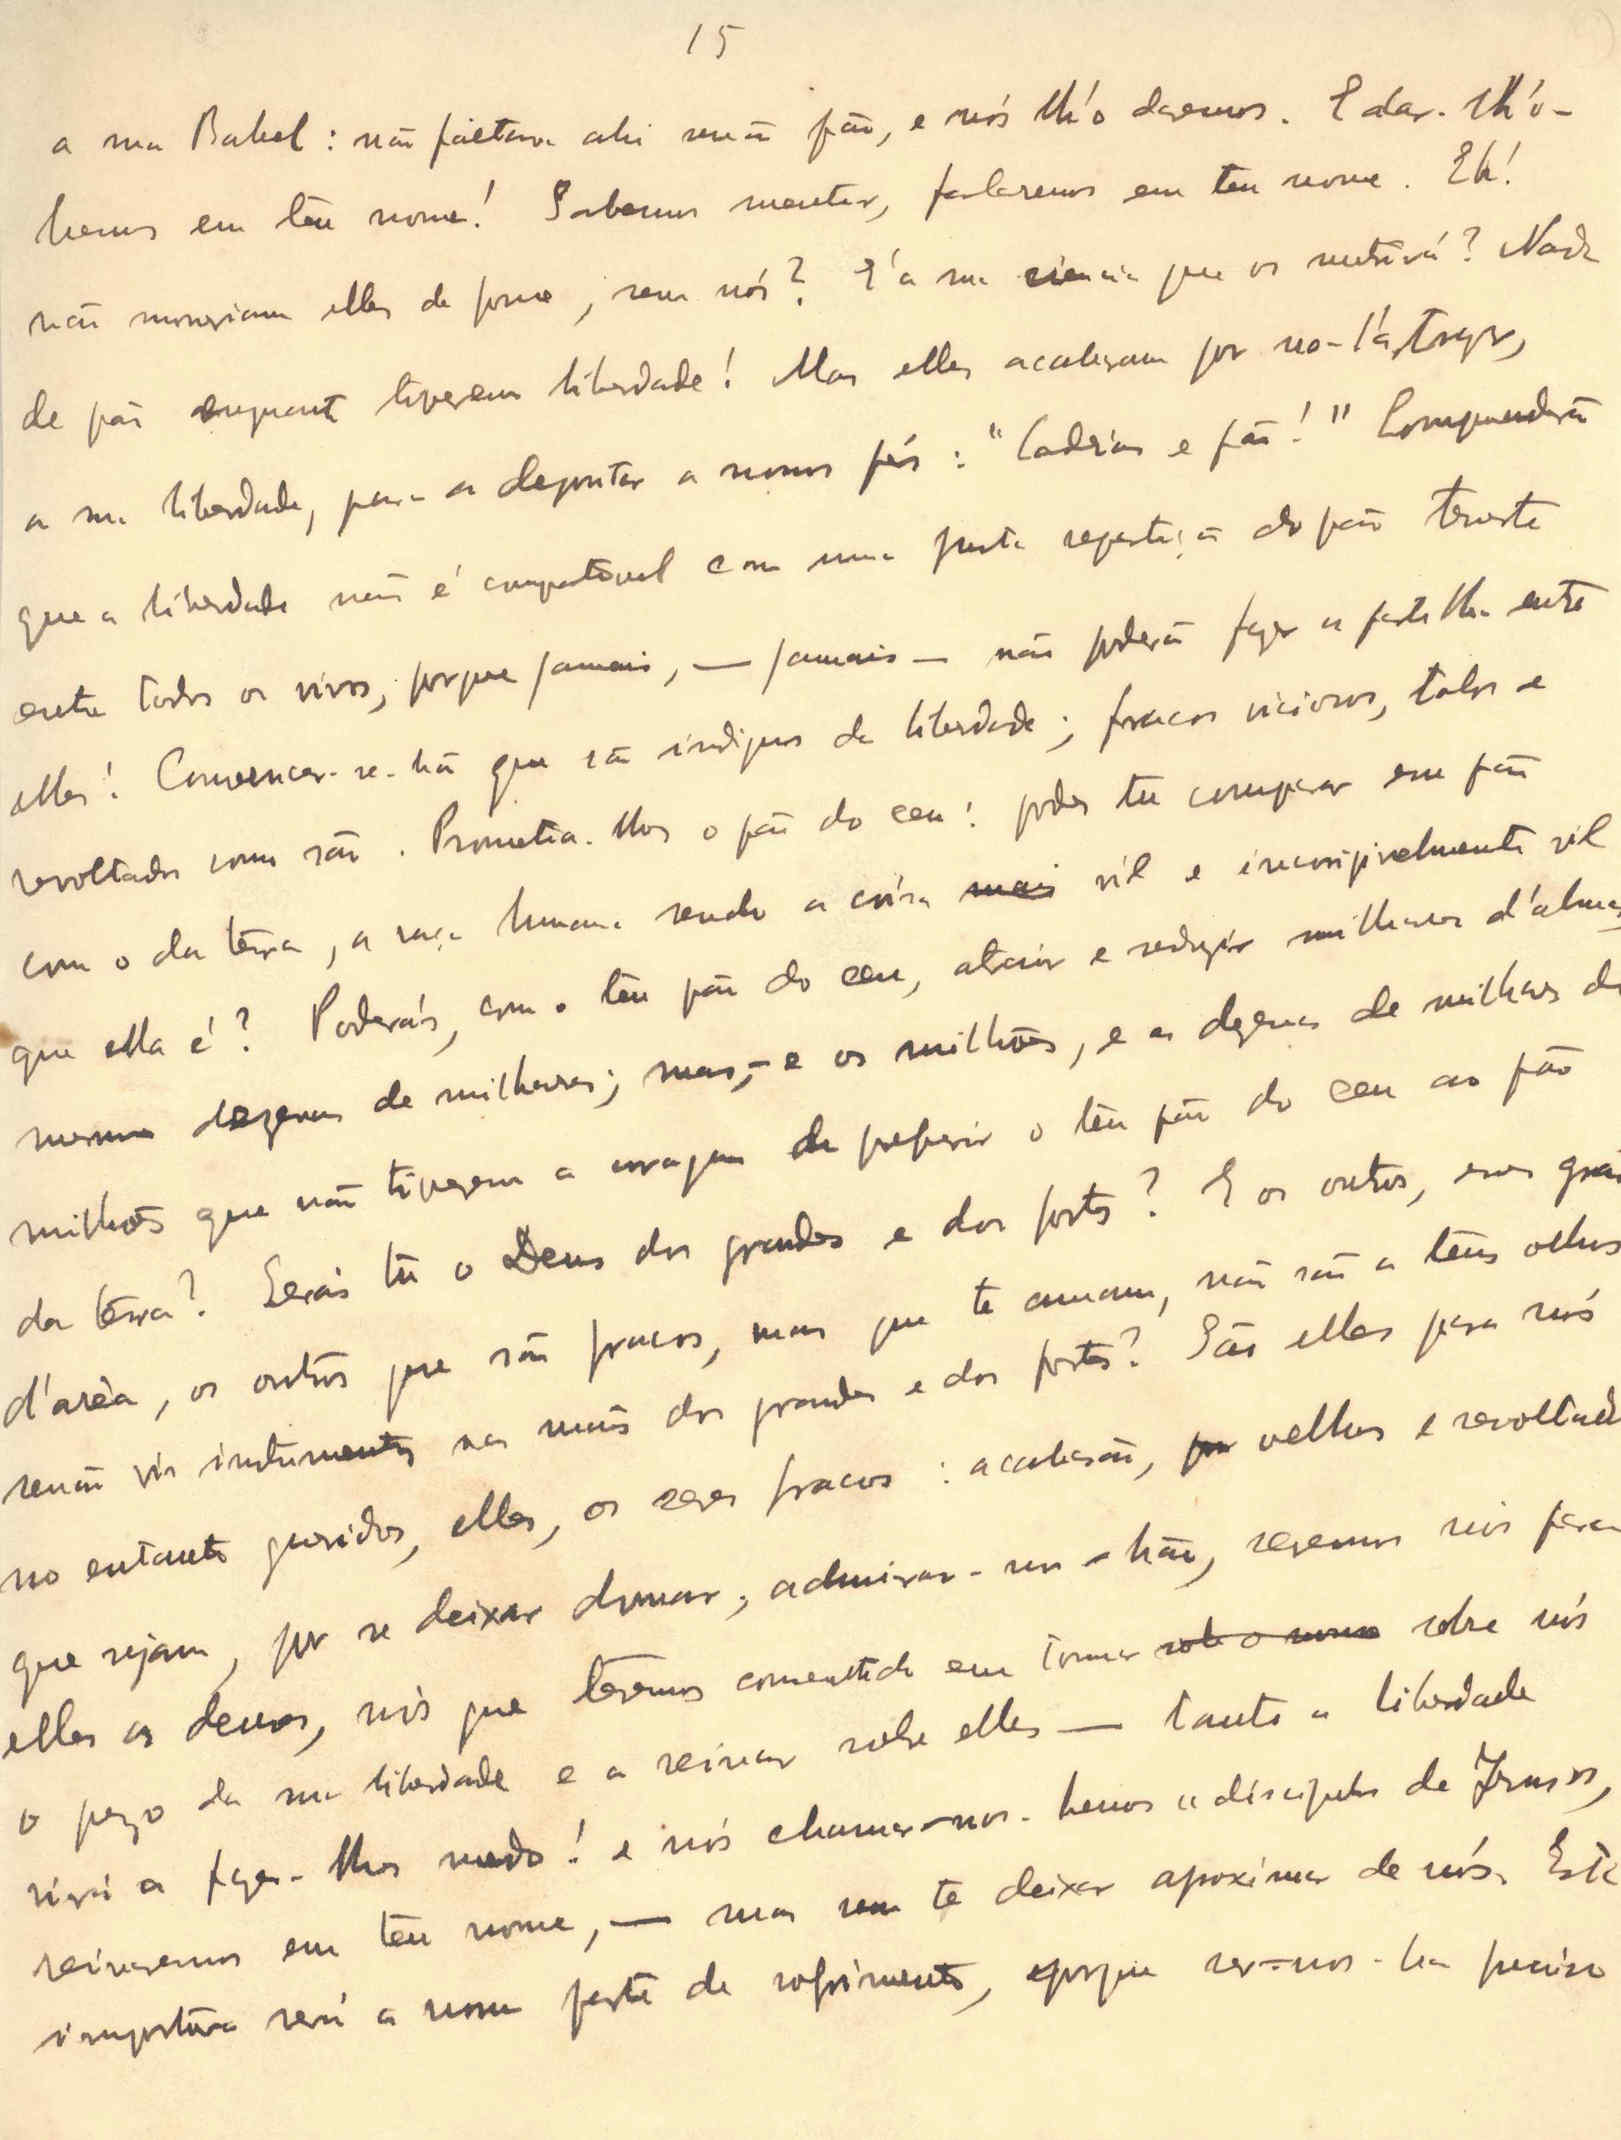 15
a sua Babel: não faltava ahi senão pão, e nós lh'o daremos. E dar-lh'o-
hemos em teu nome! Sabemos mentir, falaremos em teu nome. Eh!
não morreriam elles de fome, sem nós? E'a sua sciencia que os nutrirá? Nada
de pão enquanto tiverem liberdade! Mas elles acabaram por no-l'a, trazer,
a sua liberdade, para a depositar a nossos pés: "Cadeias e pão!" Comprenderão
que a liberdade não é compativel com uma justa repartição do pão terreste
entre todos os vivos, porque jamais, — jamais — não poderão fazer a partilha entre
elles! Convencer-se-hão que são indignos da liberdade; fracos viciosos, tolos e
revoltados como são. Prometia-lhes o pão do ceu: podes tu comparar esse pão
com o da terra, a raça humana sendo a coisa mais vil e incorrigivelmente vil
que ella é? Poderás, com o teu pão do ceu, atrair e seduzir milhares d'almas,
mesmo dezenas de milhares; mas, — e os milhões, e as dezenas de milhares de
milhões que não tiverem a coragem de preferir o teu pão do ceu ao pão
da terra? Serás tu o Deus dos grandes e dos fortes? E os outros, esses grãos
d'areia, os outros que são fracos, mas que te amam, não são a teus olhos
senão vis instrumentos nas mãos dos grandes e dos fortes? São elles para nós
no entanto queridos, elles, os seres fracos: acabarão, por velhos e revoltados
que sejam, por se deixar domar; admirar-nos-hão, seremos nós para
elles os deuses, nós que teremos consentido em tomar sob o nosso sobre nós
o pezo da sua liberdade e a reinar sobre elles — tanto a liberdade
virá a fazer-lhes medo! e nós chamar-nos-hemos "discipulos de Jesus",
reinaremos em teu nome, — mas sem te deixar aproximar de nós. Esta
impostura será a nossa parte de sofrimento, porque ser-nos-ha preciso